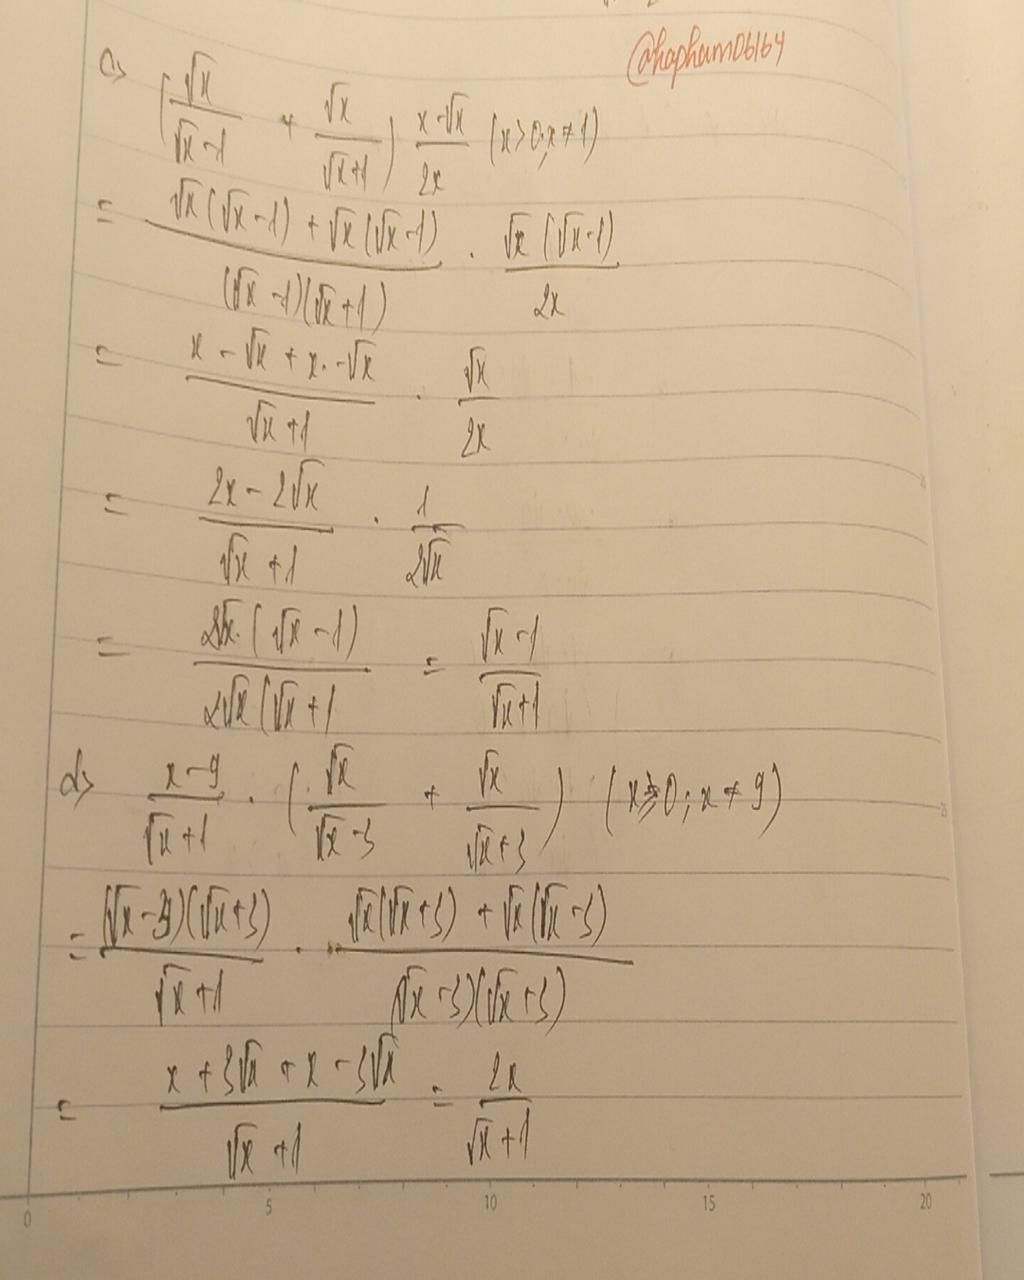 @hapham06164
c> (√x/(√x-1) + √x/(√x+1)) (x-√x)/2x (x>0; x≠1)
= (√x(√x-1) + √x(√x-1))/((√x-1)(√x+1)) . √x(√x-1)/2x
= (x-√x+x.-√x)/(√x+1) . √x/2x
= (2x-2√x)/(√x+1) . 1/2√x
= 2√x.(√x-1)/2√x(√x+1 = (√x-1)/(√x+1)
d> (x-9)/(√x+1) . (√x/(√x-3) + √x/(√x+3)) (x≥0; x≠9)
= (√x-3)(√x+3)/(√x+1) . (√x(√x+3) + √x(√x-3))/((√x-3)(√x+3))
= (x+3√x+x-3√x)/(√x+1) = 2x/(√x+1)
0 5 10 15 20